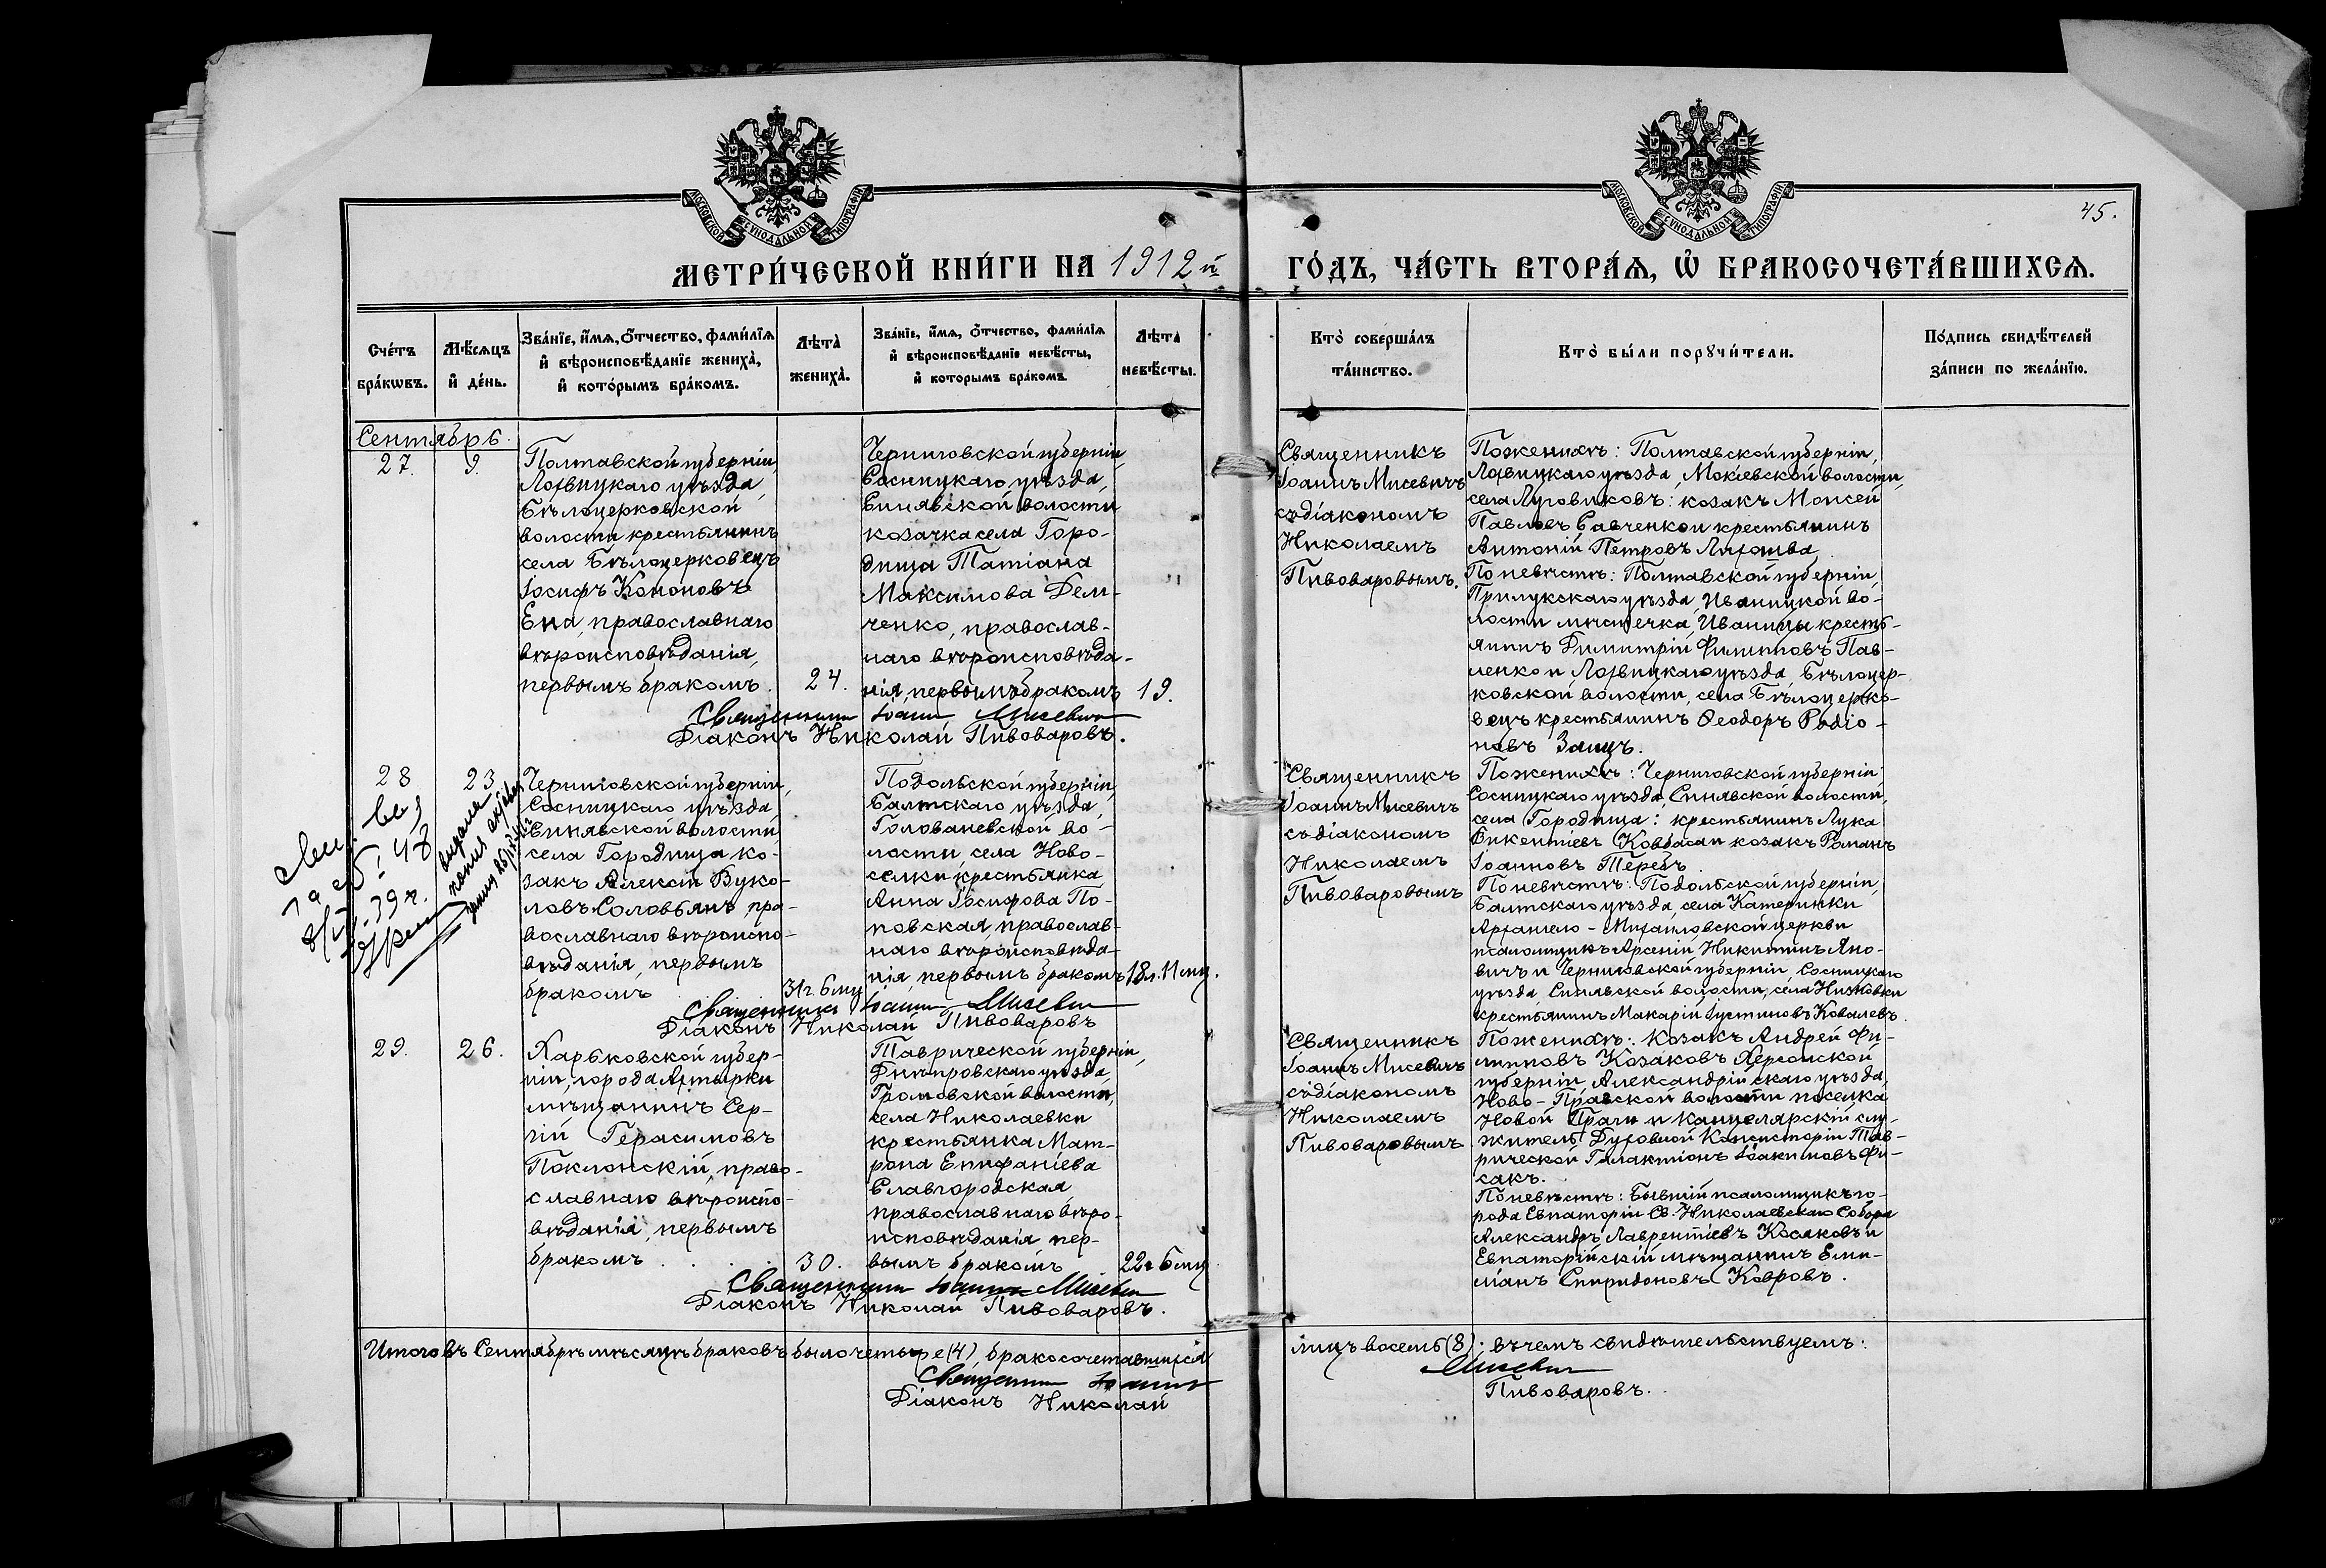 МОСКОВСКОЙ СѴНОДАЛЬНОЙ ТИПОГРАФІИ
МОСКОВСКОЙ СѴНОДАЛЬНОЙ ТИПОГРАФІИ
45.
МЕТРИ́ЧЕСКОЙ КНИ́ГИ НА 1912 й
ГО́ДЪ, ЧА́СТЬ ВТОРА́Ѧ, Ѡ҆ БРАКОСОЧЕТА́ВШИХСѦ.
Сче́тъ
бра́кѡвъ.
Мѣ́сяцъ
и҆ де́нь.
Зва́нїе, и҆́мѧ, ѻ҆́тчество, фами́лїѧ
и҆ вѣроисповѣ́данїе жениха̀,
и҆ кото́рымъ бра́комъ.
Лѣта̀
жениха̀.
Зва́нїе, и҆́мѧ, ѻ҆́тчество, фами́лїѧ
и҆ вѣроисповѣ́данїе невѣ́сты,
и҆ которымъ бра́комъ.
Лѣта
невѣ́сты.
Кто̀ соверша́лъ
та́инство.
Кто̀ бы́ли порꙋчи́тели.
По́дпись свидѣ́телей
за́писи по жела́нїю.
Сентябрь.
27.
9.
Полтавской губерніи,
Лохвицкаго уѣзда,
Бѣлоцерковской
волости крестьянинъ
села Бѣлоцерковецъ
Іосифъ Кононовъ
Ена, православнаго
вѣроисповѣданія,
первымъ бракомъ.
24.
Черниговской губерніи,
Сосницкаго уѣзда,
Синявской волости
козачка села Горо-
дища Татіана
Максимова Дем-
ченко, православ-
наго вѣроисповѣда-
нія, первымъ бракомъ
19.
Священникъ Іоаннъ Мисевичъ
Діаконъ Николай Пивоваровъ.
Священникъ
Іоаннъ Мисевичъ
съ діакономъ
Николаемъ
Пивоваровымъ.
По женихѣ: Полтавской губерніи,
Лохвицкаго уѣзда, Мокіевской волости,
села Луговиковъ: козакъ Моисей
Павловъ Савченко и крестьянинъ
Антоній Петровъ
По невѣстѣ: Полтавской губерніи,
Прилукскаго уѣзда, Иваницкой во-
лости мѣстечка, Иваницы кресть-
янинъ Димитрій Филипповъ Пав-
ленко и Лохвицкаго уѣзда, Бѣлоцер-
ковской волости, села Бѣлоцерко-
вецъ крестьянинъ Ѳеодоръ Родіо-
новъ Заицъ.
28
23
Черниговской губерніи,
Сосницкаго уѣзда,
Синявской волости,
села Городища ко-
закъ Алексій Вуко-
ловъ Соловьянъ, пра-
вославнаго вѣроиспо-
вѣданія, первымъ
бракомъ
31 г. 6 мц
Подольской губерніи,
Балтскаго уѣзда,
Голованевской во-
лости, села Ново-
селки крестьянка
Анна Іосифова По-
повская, православ-
наго вѣроисповѣда-
нія, первымъ бракомъ
18 л. 11 мц.
Священникъ Іоаннъ Мисевичъ
Діаконъ Николай Пивоваровъ
Священникъ
Іоаннъ Мисевичъ
съ діакономъ
Николаемъ
Пивоваровымъ
По женихѣ: Черниговской губерніи
Сосницкаго уѣзда, Синявской волости,
села Городища: крестьянинъ Лука
Викентіевъ Ковбаса и козакъ Романъ
Іоанновъ Теребъ.
По невѣстѣ: Подольской губерніи,
Балтскаго уѣзда, села Катеринки
Архангело-Михаиловской церкви
псаломщикъ Арсеній Никитинъ Яно-
вичъ и Черниговской губерніи, Сосницкаго
уѣзда, Синявской волости, села Низковки
крестьянинъ Макарій Іустиновъ Ковалевъ.
29.
26.
Харьковской губер-
ніи, города Ахтырки
мѣщанинъ Сер-
гій Герасимовъ
Поклонскій, право-
славнаго вѣроиспо-
вѣданія, первымъ
бракомъ
30.
Таврической губерніи,
Днѣпровскаго уѣзда
Громовской волости,
села Николаевки
крестьянка Мат-
рона Епифаніева
Славгородская
православнаго вѣро-
исповѣданія, пер-
вымъ бракомъ
22 г 6 мц.
Священникъ Іоаннъ Мисевичъ
Діаконъ Николай Пивоваровъ.
Священникъ
Іоаннъ Мисевичъ
съ діакономъ
Николаемъ
Пивоваровымъ
По женихѣ: Козакъ Андрей Фи-
липповъ Козаковъ Херсонской
губерніи, Александрійскаго уѣзда,
Ново-Пражской волости поселка
Новой Праги и Канцелярскій слу-
житель Духовной Консисторіи Тав-
рической Галактіонъ Іоакимовъ Фи-
сакъ.
По невѣстѣ: Бывшій псаломщикъ го-
рода Евпаторіи Св. Николаевскаго Собора
Александръ Лаврентіевъ Косяковъ и
Евпаторійскій мѣщанинъ Еми-
ліанъ Спиридоновъ Ковровъ.
Итого въ Сентябрѣ мѣсяцѣ браковъ было четыре (4), бракосочетавшихся
лицъ восемь (8): въ чемъ свидѣтельствуемъ:
Священникъ Іоаннъ
Мисевичъ
Діаконъ Николай
Пивоваровъ.